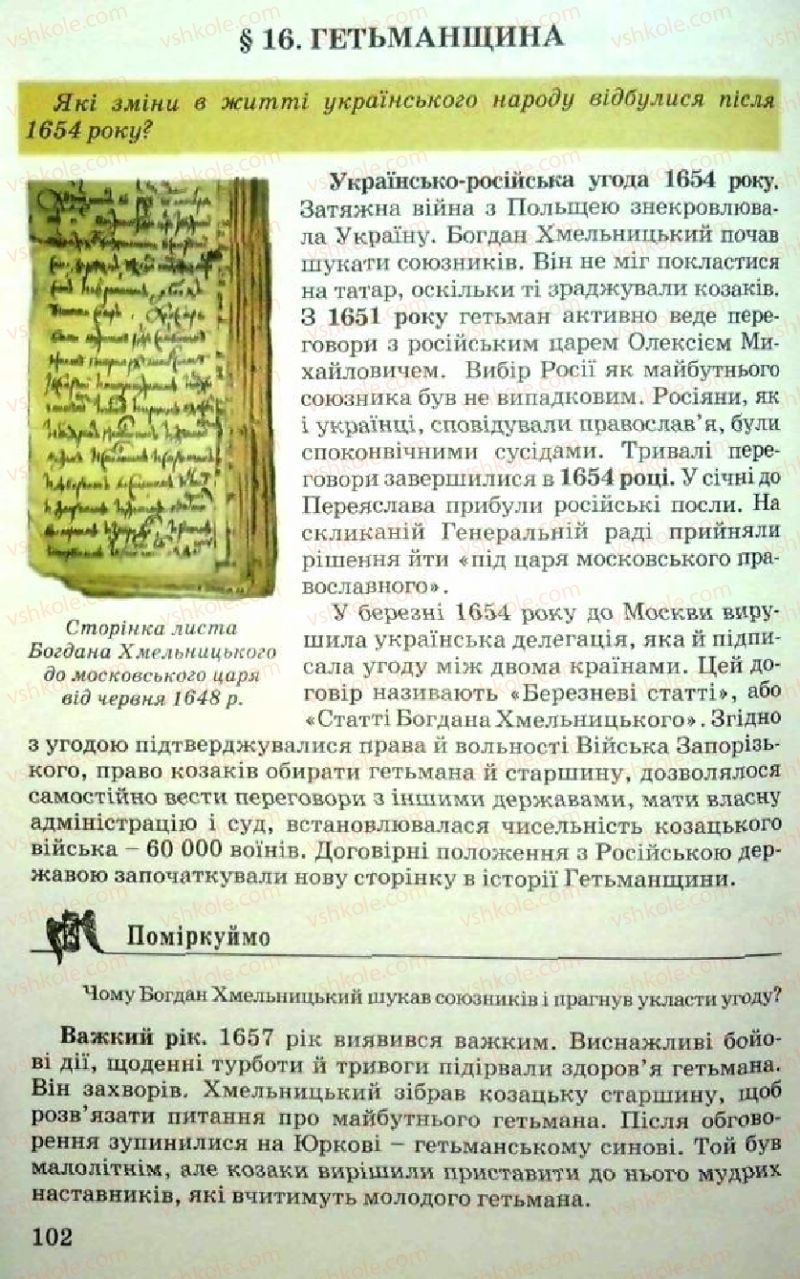 § 16. ГЕТЬМАНЩИНА
Які зміни в житті українського народу відбулися після
1654 року?
Українсько-російська угода 1654 року.
Затяжна війна з Польщею знекровлюва-
ла Україну. Богдан Хмельницький почав
шукати союзників. Він не міг покластися
на татар, оскільки ті зраджували козаків.
З 1651 року гетьман активно веде пере-
говори з російським царем Олексієм Ми-
хайловичем. Вибір Росії як майбутнього
союзника був не випадковим. Росіяни, як
і українці, сповідували православ’я, були
споконвічними сусідами. Тривалі пере-
говори завершилися в 1654 році. У січні до
Переяслава прибули російські посли. На
скликаній Генеральній раді прийняли
рішення йти «під царя московського пра-
вославного».
Сторінка листа
Богдана Хмельницького
до московського царя
від червня 1648 р.
У березні 1654 року до Москви виру-
шила українська делегація, яка й підпи-
сала угоду між двома країнами. Цей до-
говір називають «Березневі статті», або
«Статті Богдана Хмельницького». Згідно
з угодою підтверджувалися права й вольності Війська Запорізь-
кого, право козаків обирати гетьмана й старшину, дозволялося
самостійно вести переговори з іншими державами, мати власну
адміністрацію і суд, встановлювалася чисельність козацького
війська – 60 000 воїнів. Договірні положення з Російською дер-
жавою започаткували нову сторінку в історії Гетьманщини.
Поміркуймо
Чому Богдан Хмельницький шукав союзників і прагнув укласти угоду?
Важкий рік. 1657 рік виявився важким. Виснажливі бойо-
ві дії, щоденні турботи й тривоги підірвали здоров’я гетьмана.
Він захворів. Хмельницький зібрав козацьку старшину, щоб
розв’язати питання про майбутнього гетьмана. Після обгово-
рення зупинилися на Юркові – гетьманському синові. Той був
малолітнім, але козаки вирішили приставити до нього мудрих
наставників, які вчитимуть молодого гетьмана.
102
vshkole.com